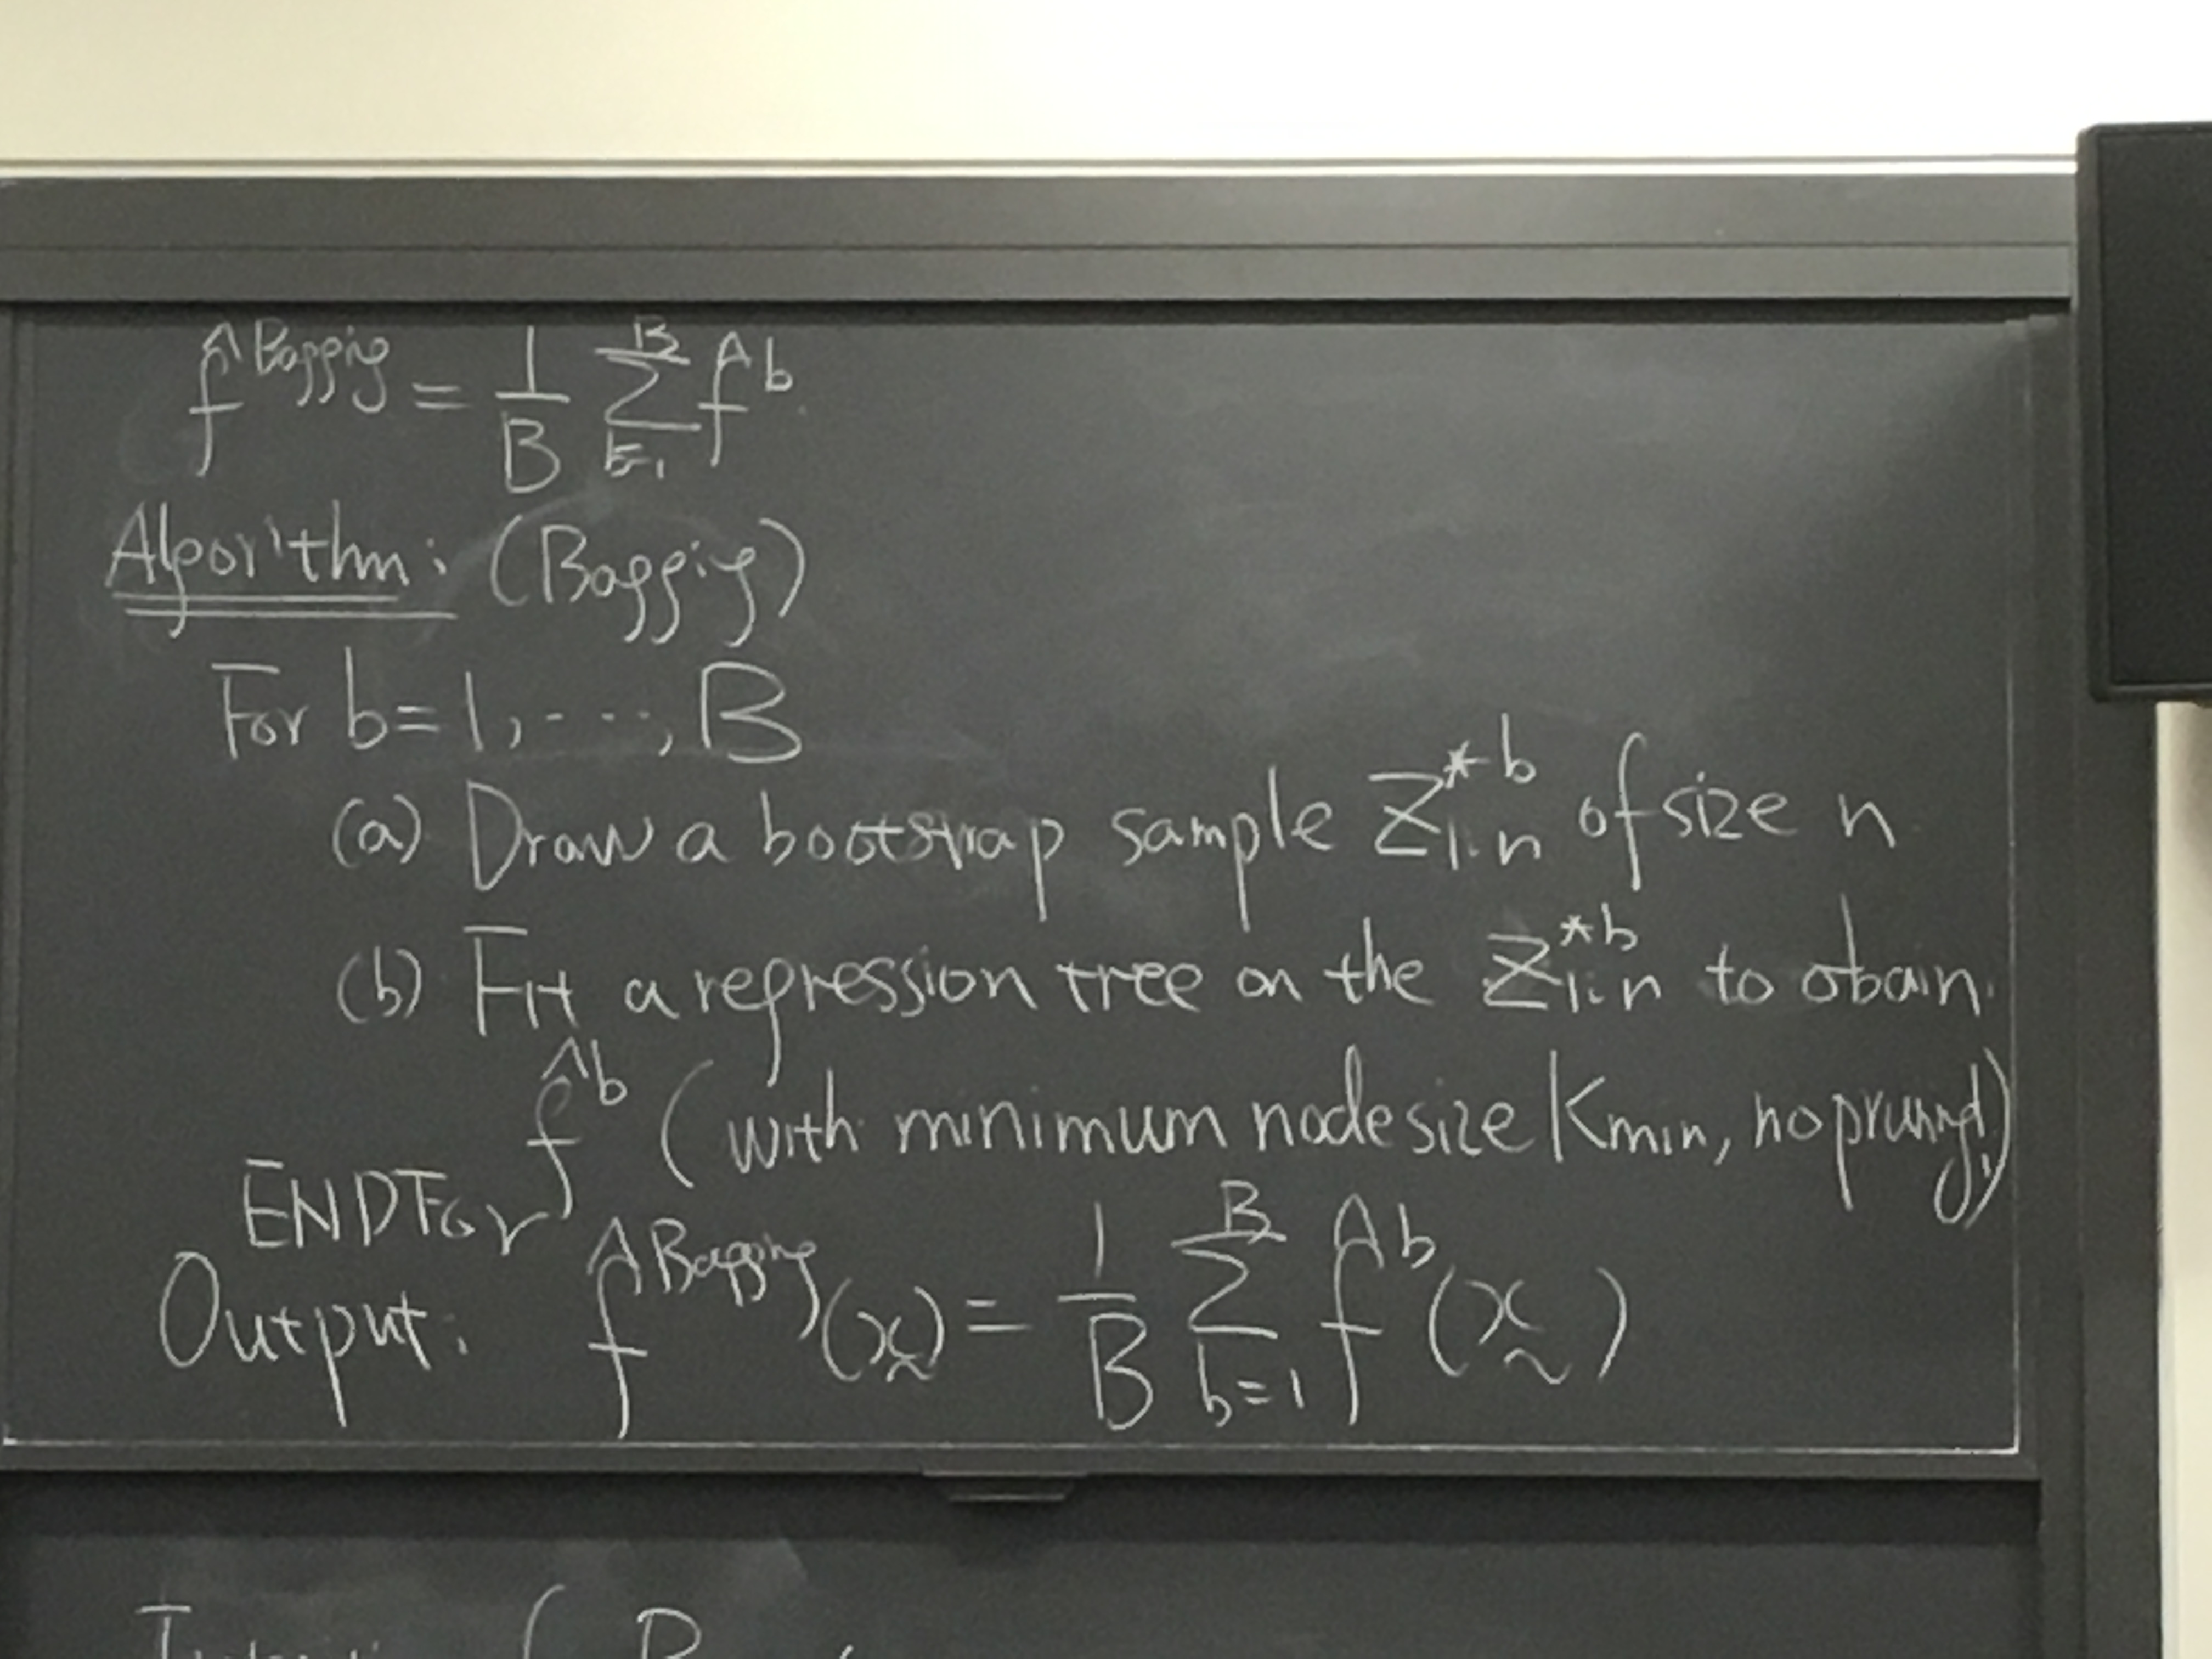 f̂^Bagging = 1/B Σ_{b=1}^{B} f̂^b
Algorithm: (Bagging)
For b=1,...,B
(a) Draw a bootstrap sample Z^{*b}_{1:n} of size n
(b) Fit a regression tree on the Z^{*b}_{1:n} to obain
f̂^b (with minimum node size Kmin, no pruning!)
ENDFor
Output: f̂^Bagging(x̰) = 1/B Σ_{b=1}^{B} f̂^b(x̰)